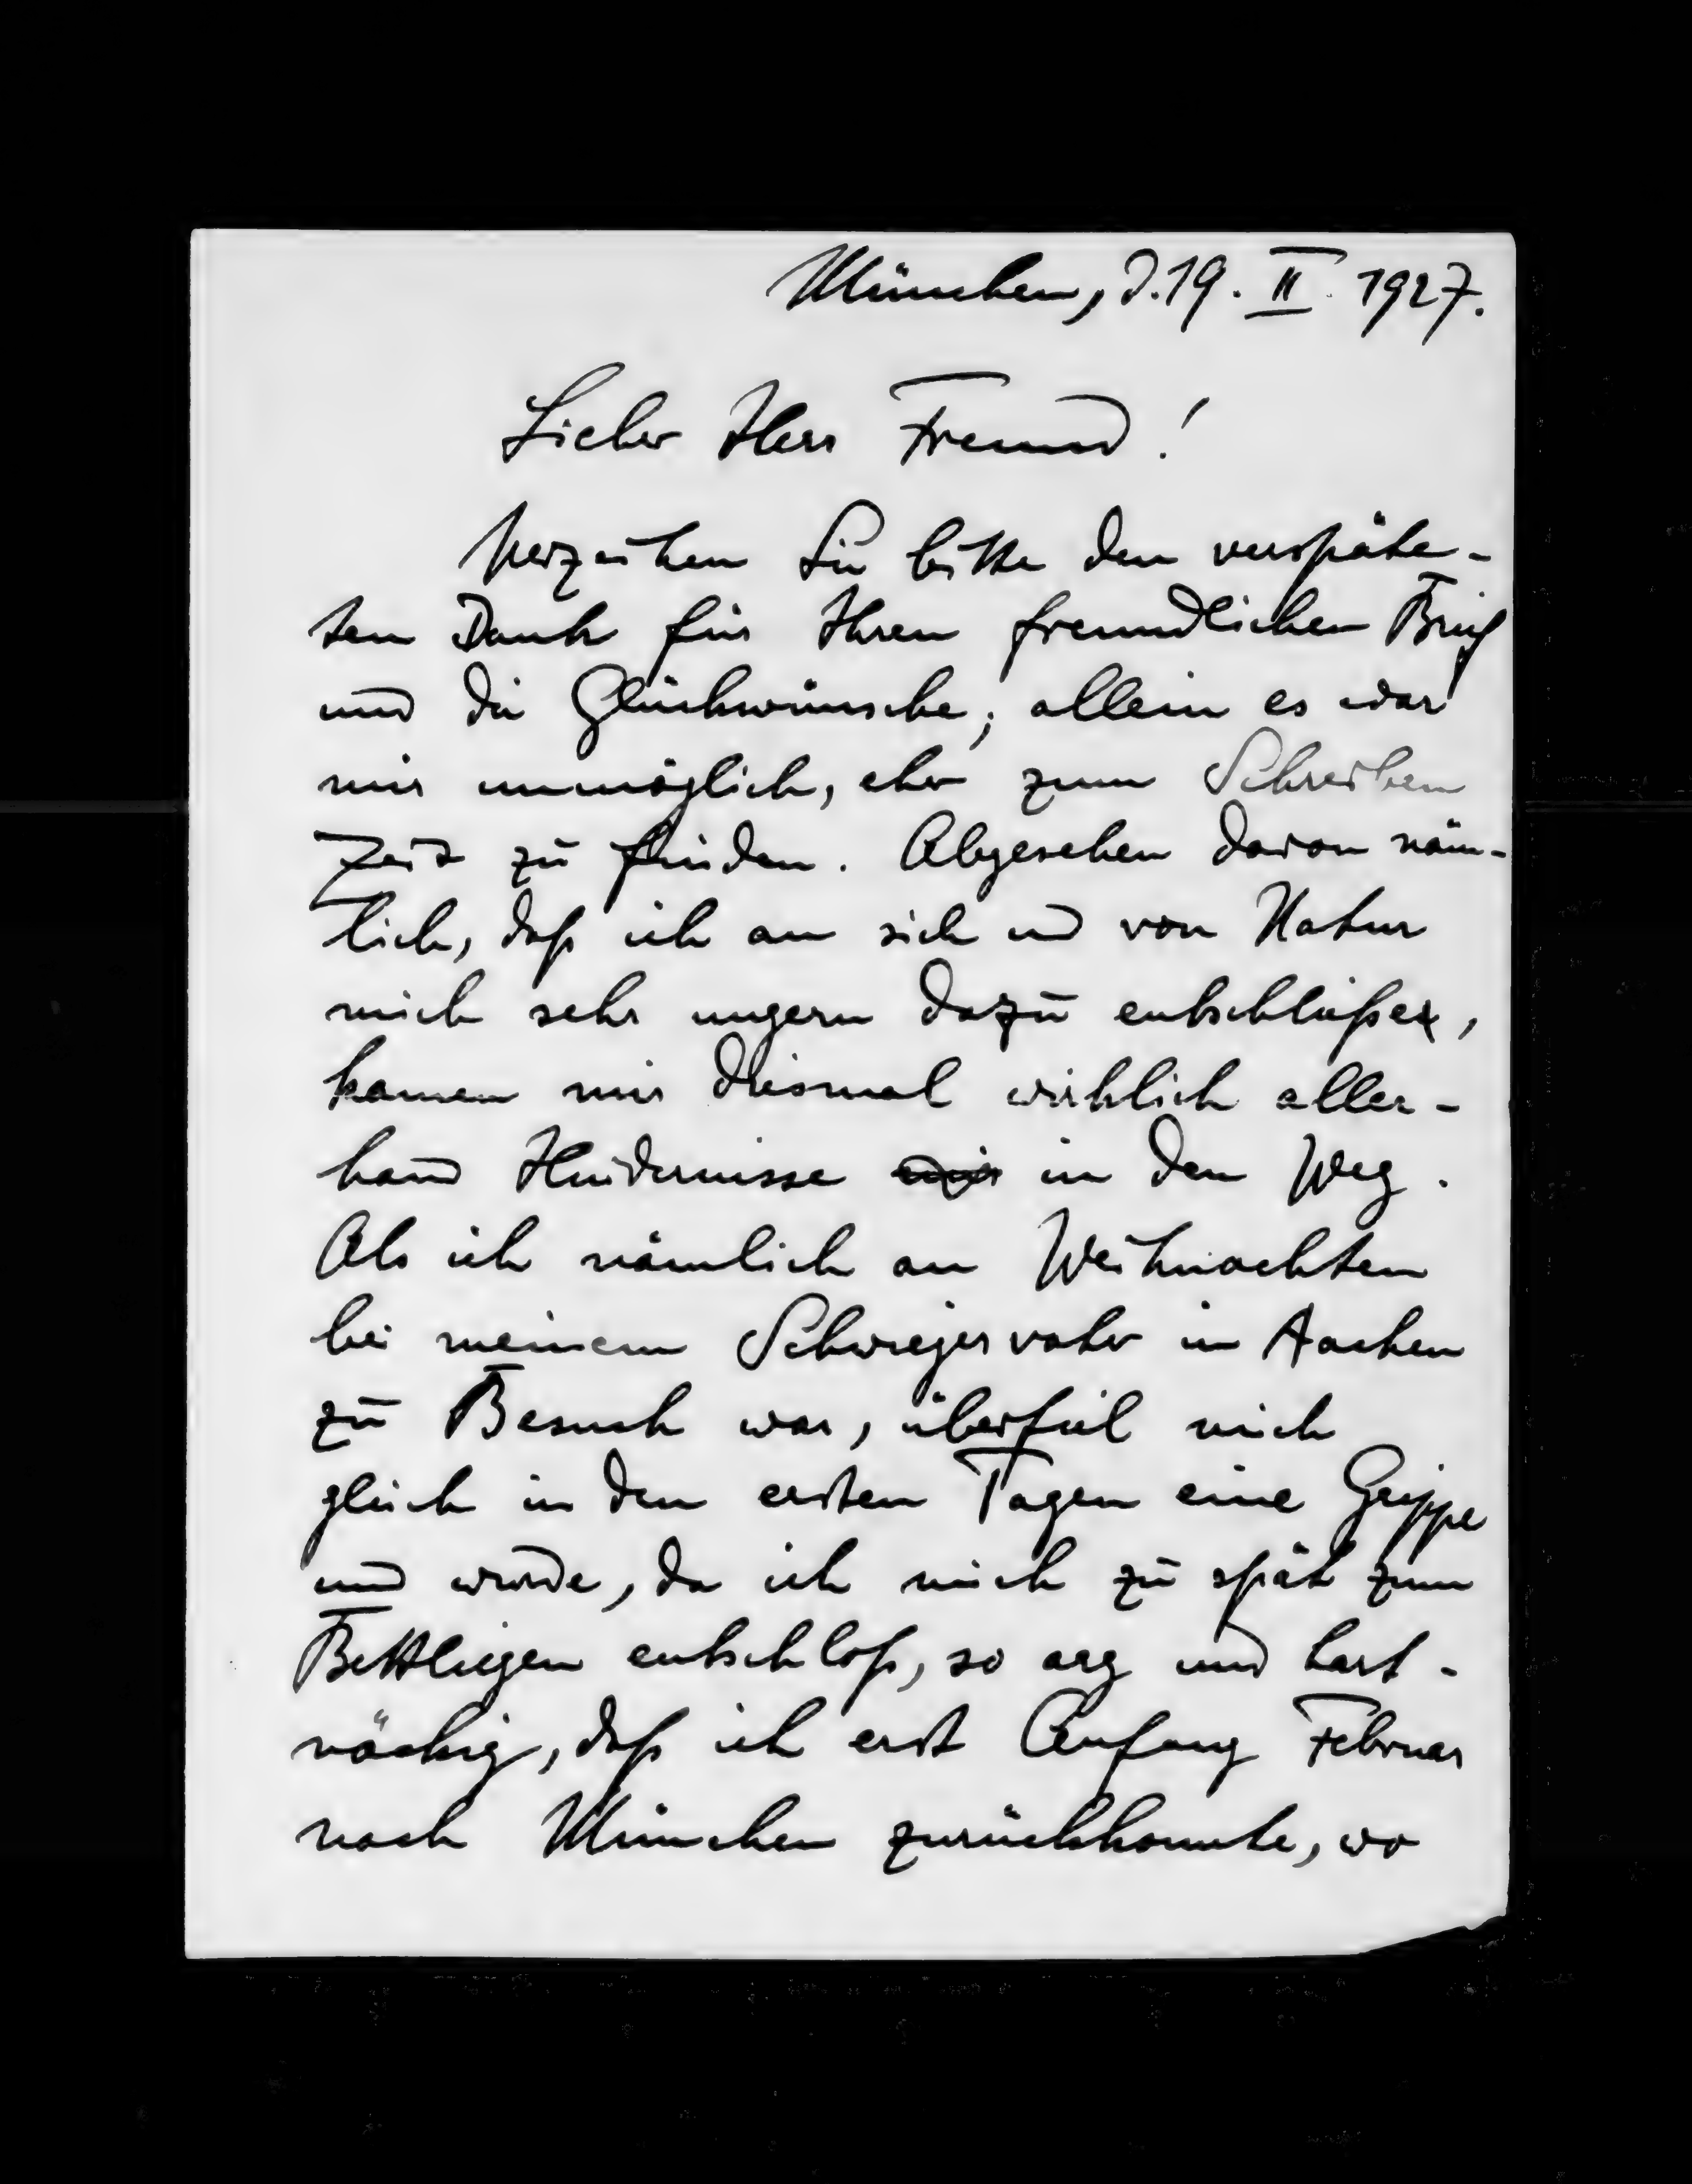 München, d. 19. II. 1927.
Lieber Herr Freund!
Verzeihen Sie bitte den verspäte-
ten Dank für Ihren freundlichen Brief
und die Glückwünsche; allein es war
mir unmöglich, eher zum Schreiben
Zeit zu finden. Abgesehen davon näm-
lich, daß ich an sich und von Natur
mich sehr ungern dazu entschließe,
kamen mir diesmal wirklich aller-
hand Hindernisse in den Weg.
Als ich nämlich an Weihnachten
bei meinem Schwiegervater in Aachen
zu Besuch war, überfiel mich
gleich in den ersten Tagen eine Grippe
und wurde, da ich mich zu spät zum
Bettliegen entschloß, so arg und hart-
näckig, daß ich erst Anfang Februar
nach München zurückkonnte, wo